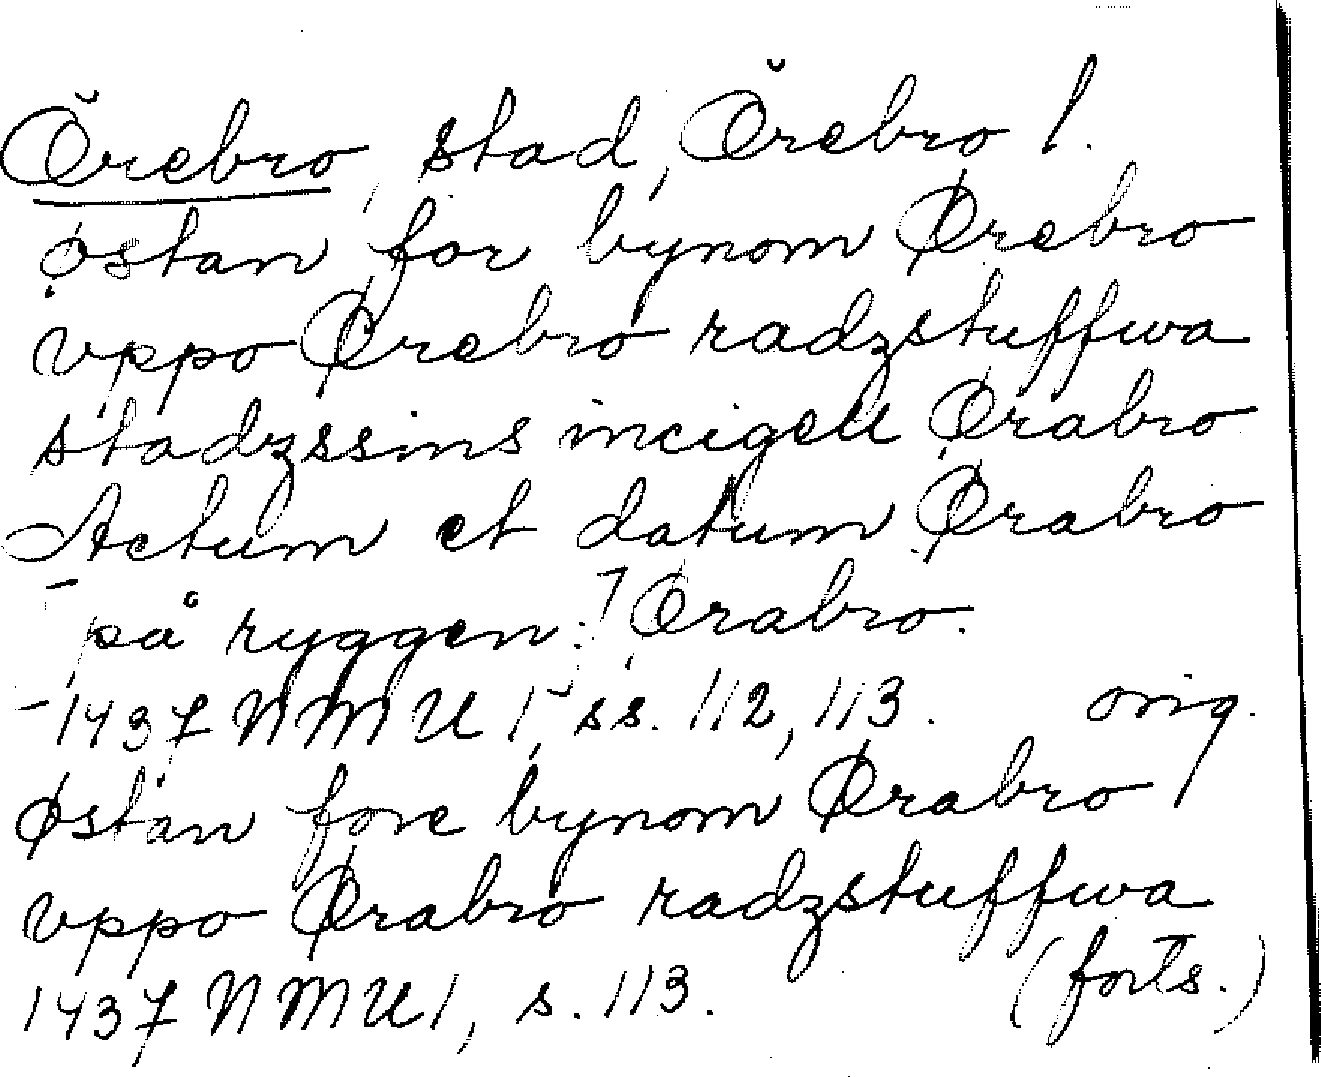 Örebro, stad, Örebro l.
østan for bynom Ørebro
vppo Ørebro radzstuffwa
stadzssins incigelle Ørabro
Actum et datum Ørabro
på ryggen: Ørabro.
1437 NMU 1, ss. 112, 113. orig.
Østan fore bynom Ørabro
vppo Ørabro radzstuffwa
1437 NMU 1, s. 113. (forts.)